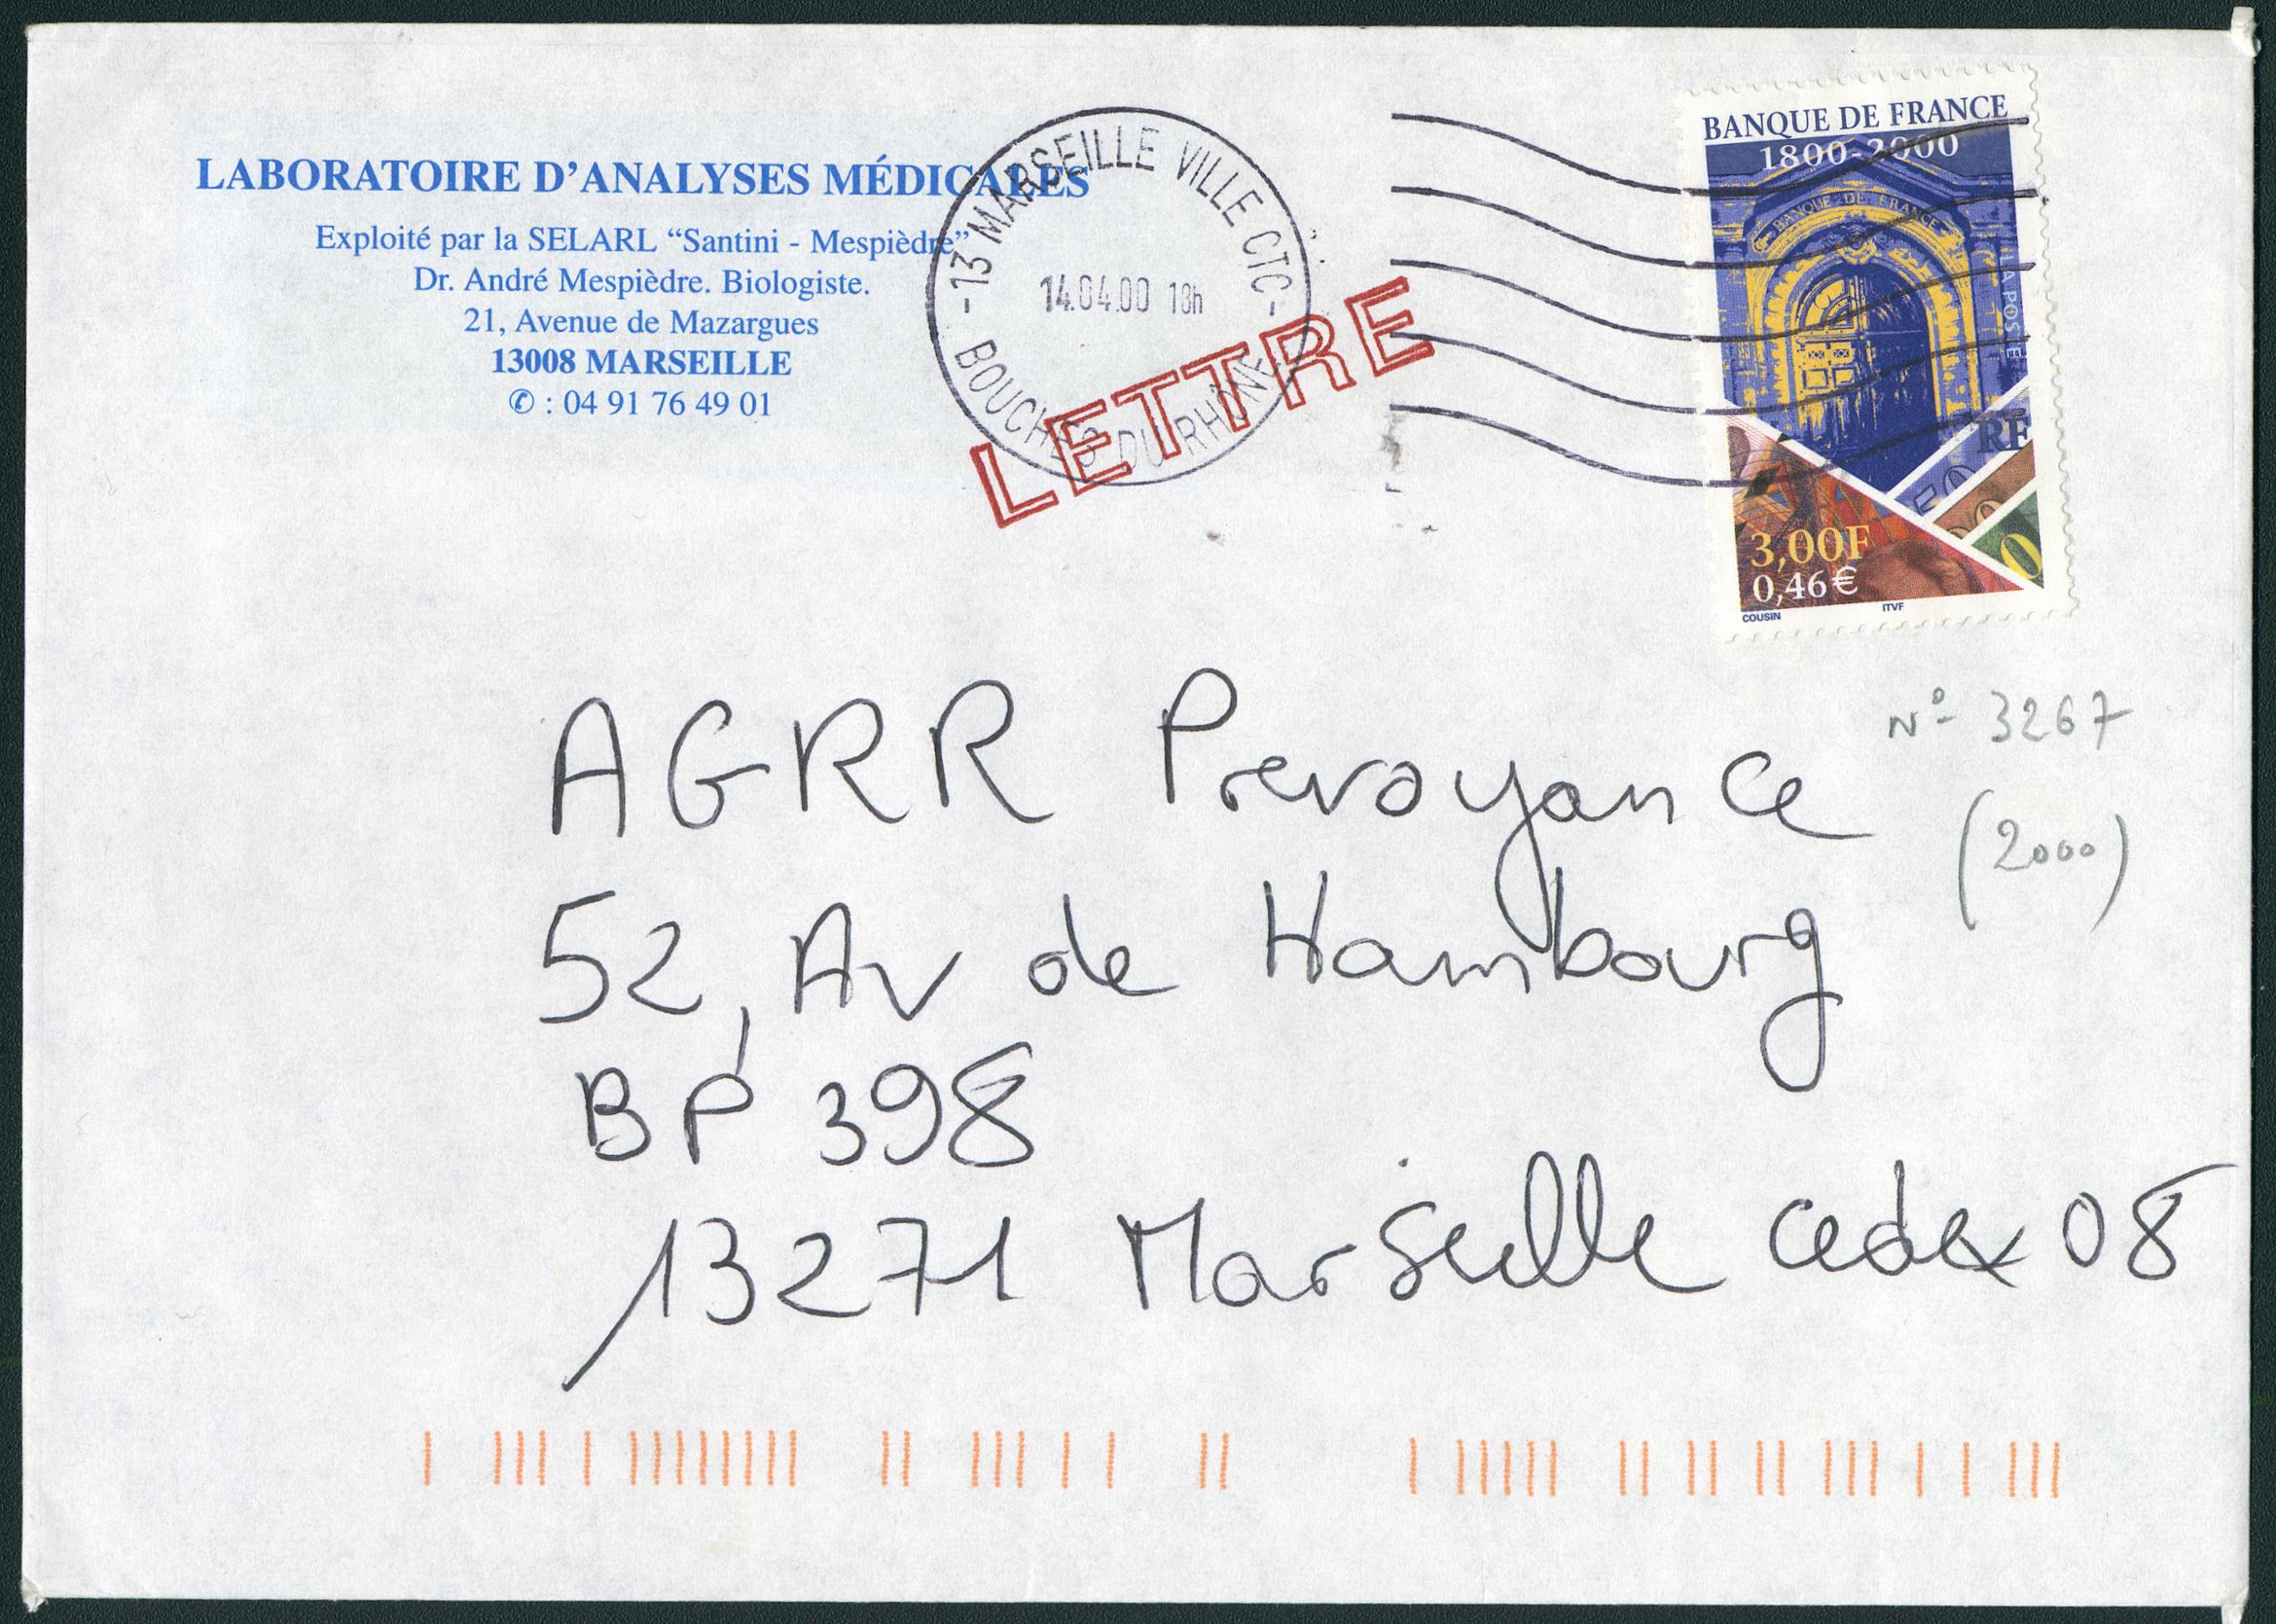 LABORATOIRE D'ANALYSES MÉDICALES
Exploité par la SELARL “Santini - Mespièdre”
Dr. André Mespièdre. Biologiste.
21, Avenue de Mazargues
13008 MARSEILLE
✆ : 04 91 76 49 01
-13 MARSEILLE VILLE CTC-
14.04.00 18h
BOUCHES DU RHONE
LETTRE
BANQUE DE FRANCE
1800-2000
BANQUE DE FRANCE
LA POSTE
RF
3,00F
0,46€
COUSIN
ITVF
N° 3267
(2000)
AGRR Prevoyance
52, Av de Hambourg
BP 398
13271 Marseille cedex 08